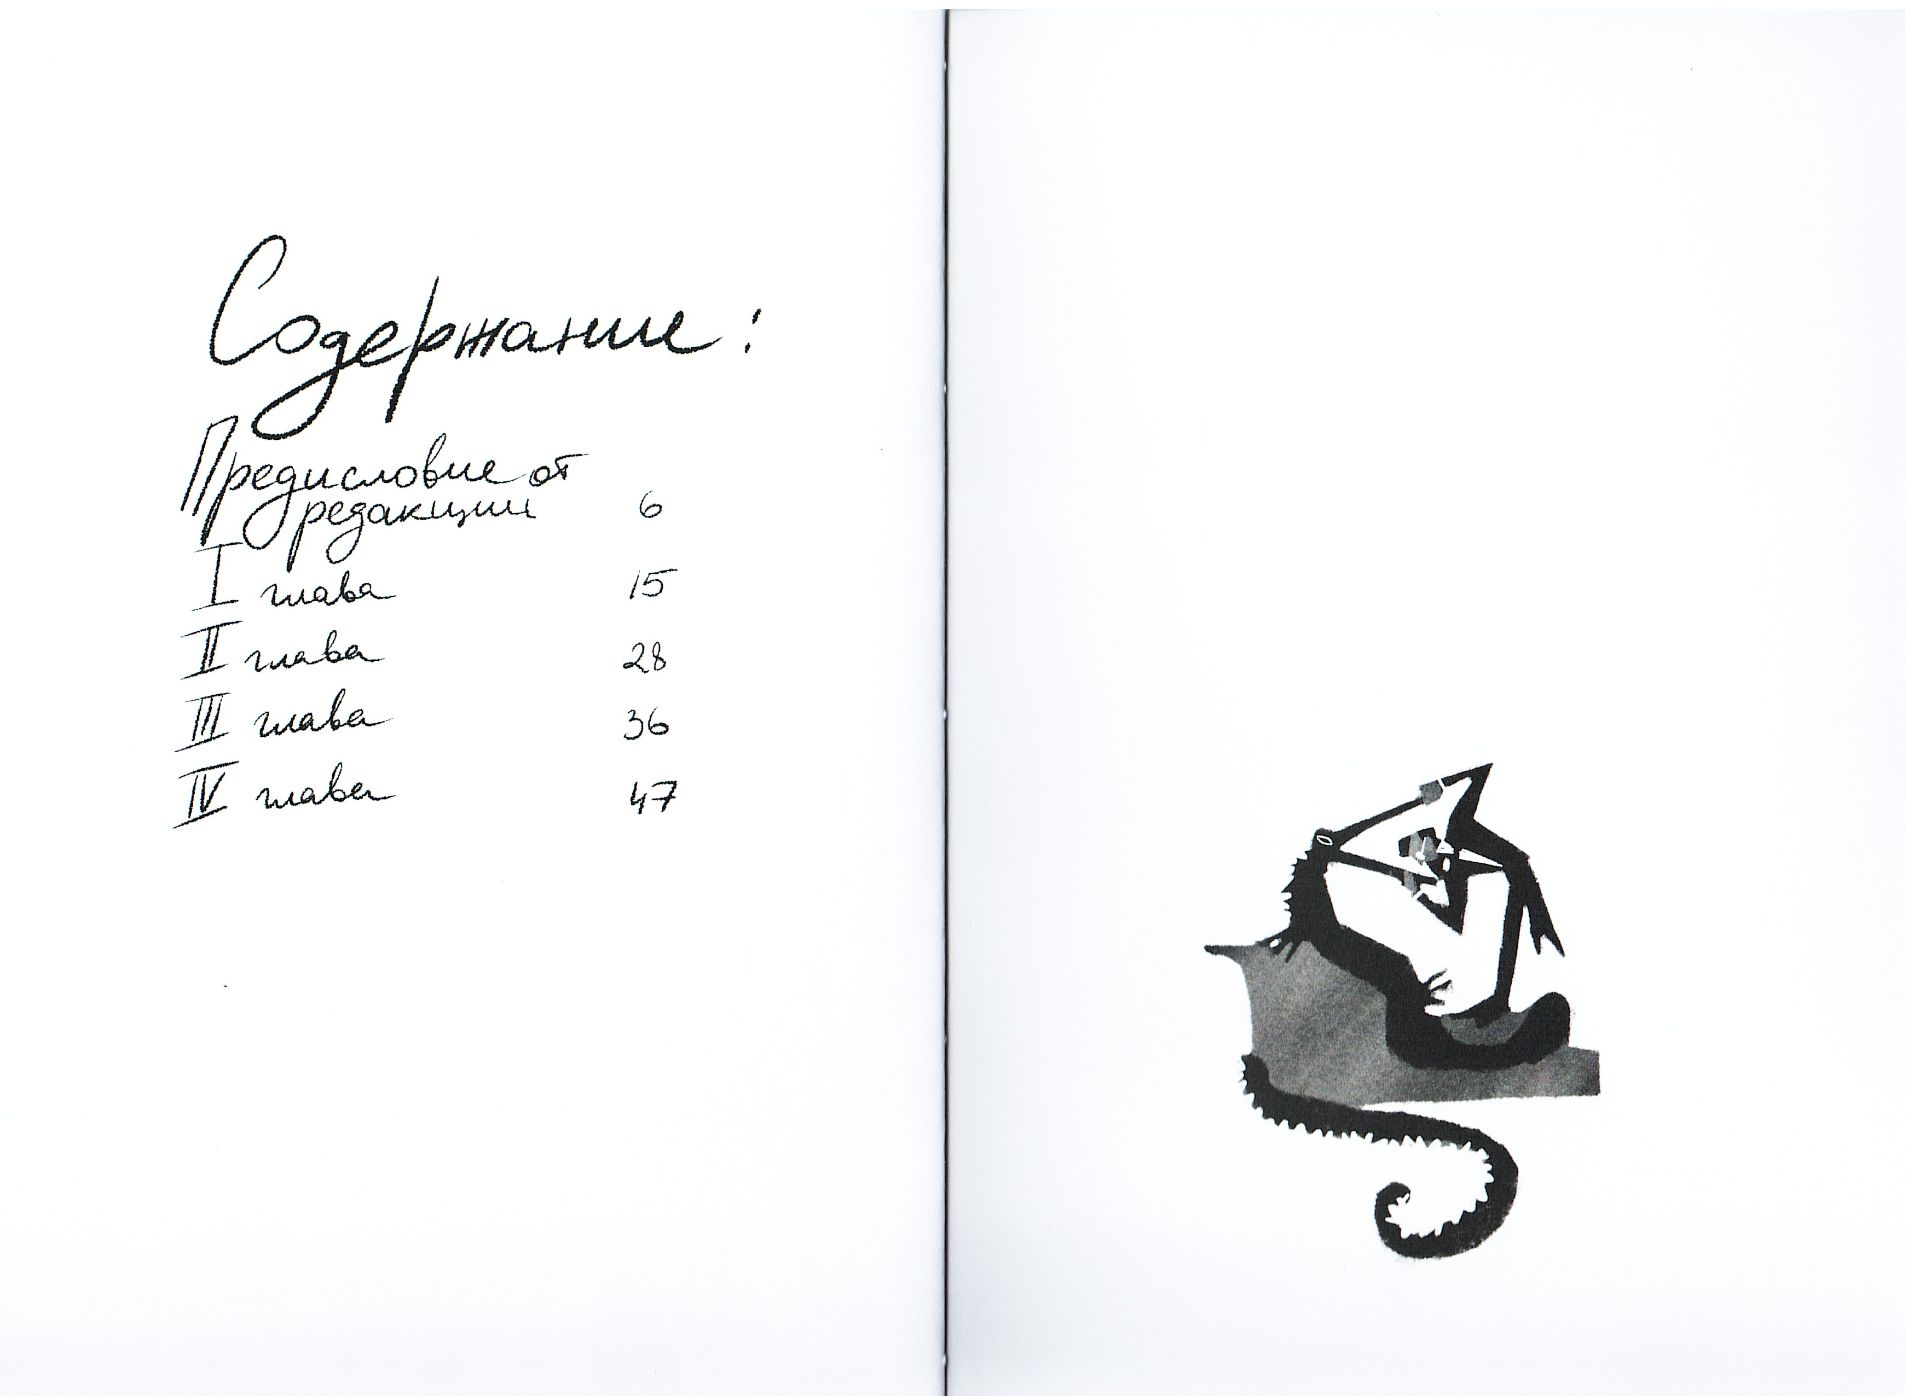 Содержание:
Предисловие от
редакции 6
I глава 15
II глава 28
III глава 36
IV глава 47